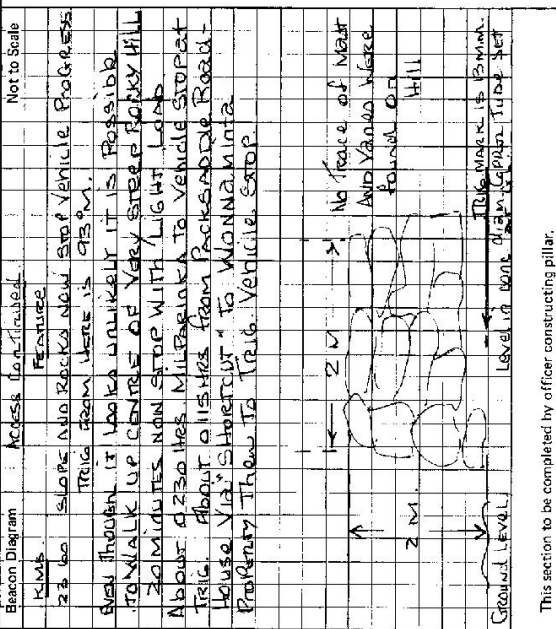 Beacon Diagram
Not to Scale
ACCESS Continued
KMS. FEATURE
23.60 SLOPE AND ROCKS NOW STOP VEHICLE PROGRESS
TRIG FROM HERE IS 93°M.
EVEN THOUGH IT LOOKS UNLIKELY IT IS POSSIBLE
TO WALK UP CENTRE OF VERY STEEP ROCKY HILL
20 MINUTES NON STOP WITH LIGHT LOAD
ABOUT 0230 HRS MILPARINKA TO VEHICLE STOP AT
TRIG. ABOUT 0115 HRS FROM PACKSADDLE ROAD-
HOUSE VIA "SHORTCUT" TO WONNAMINTA
PROPERTY THEN TO TRIG VEHICLE STOP.
2 M
2 M.
No TRACE OF MAST
AND VANES WERE
FOUND ON
HILL
GROUND LEVEL
TRIG MARK IS 13 M.M.
DIAM. COPPER TUBE SET
This section to be completed by officer constructing pillar.